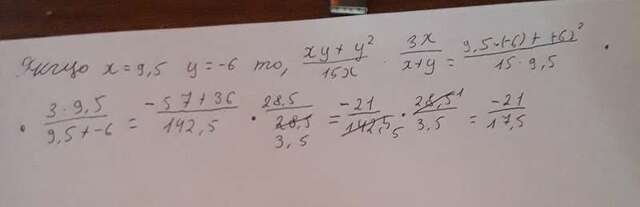 Якщо x = 9,5 y = -6 то, \frac{xy + y^2}{15x} \cdot \frac{3x}{x+y} = \frac{9,5 \cdot (-6) + (-6)^2}{15 \cdot 9,5} \cdot
\cdot \frac{3 \cdot 9,5}{9,5 + -6} = \frac{-57 + 36}{142,5} \cdot \frac{28,5}{\cancel{28,5} 3,5} = \frac{-21}{\cancel{142,5} 5} \cdot \frac{\cancel{28,5} 1}{3,5} = \frac{-21}{17,5}